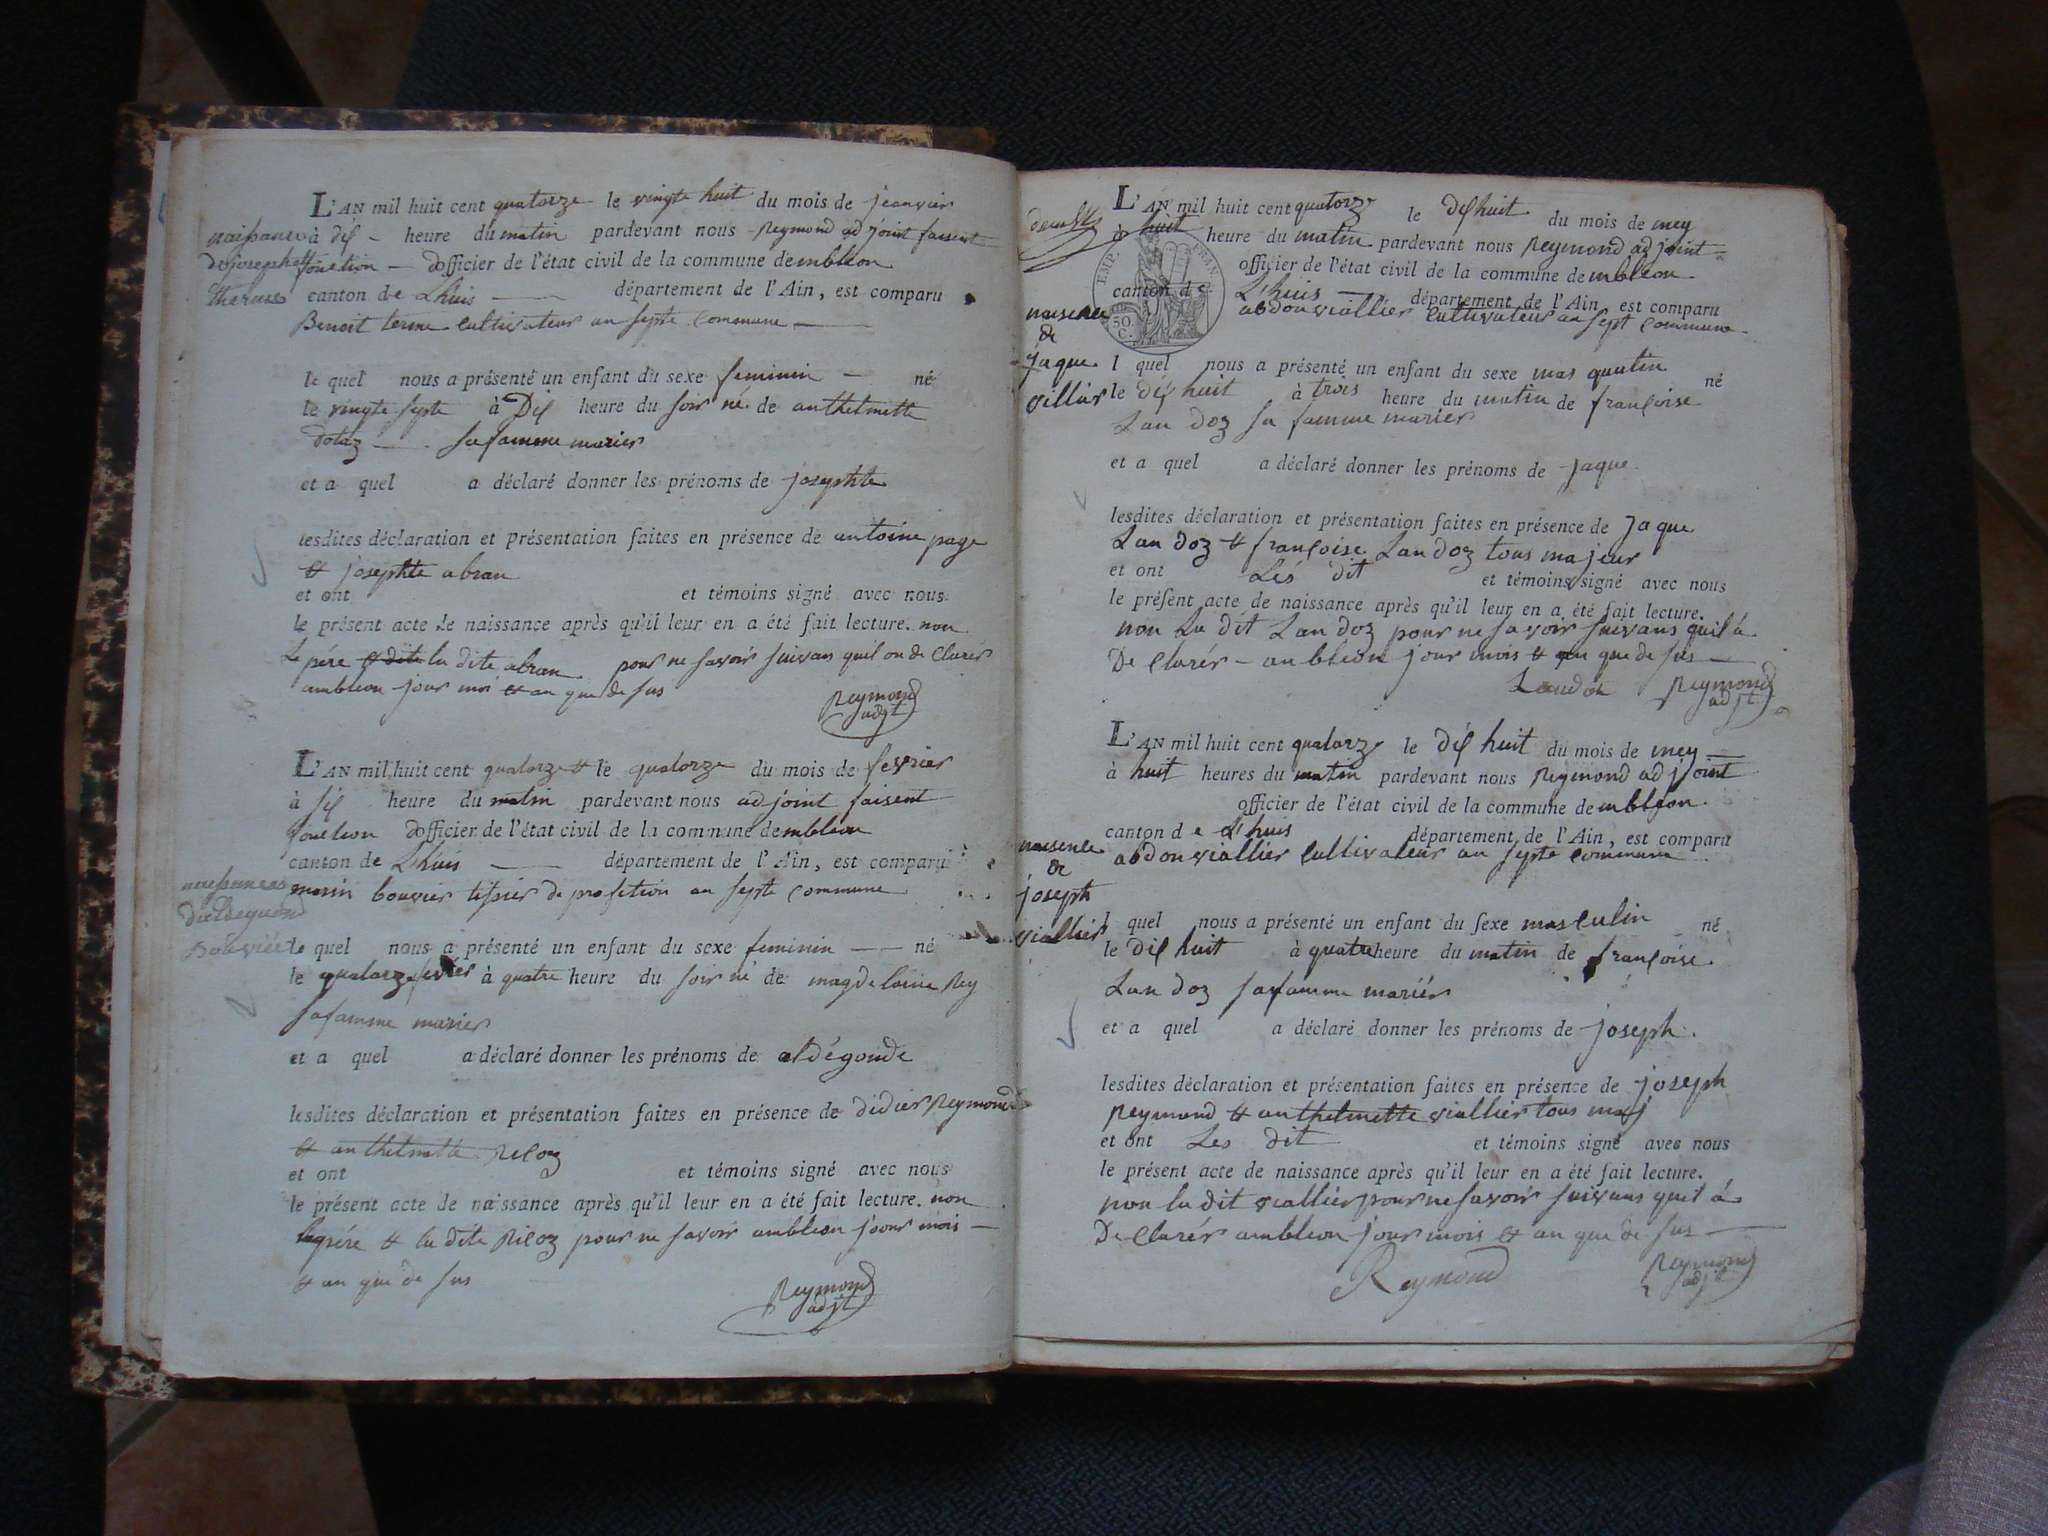 L'AN mil huit cent quatorze le vingte huit du mois de jeanvier
à dis heure du matin pardevant nous Reymond adjoint faisent
fonction d'officier de l'état civil de la commune dembleon
canton de Lhuis département de l'Ain, est comparu
Benoit terme cultivateur au septe commune
naissance
de josephete
therme
le quel nous a présenté un enfant du sexe feminin né
le vingte septe à Dis heure du soir né de anthelmette
dotaz sa famme marier
et a quel a déclaré donner les prénoms de josephte
lesdites déclaration et présentation faites en présence de antoine page
& josephte abran
et ont et témoins signé avec nous
le présent acte de naissance après qu'il leur en a été fait lecture. non
Le pére & dite la dite abran pour ne savoir suivans quil on de Clarér
ambleon jour moi & an que de sus
Reymond
adjt
L'AN mil huit cent quatorze & le quatorze du mois de fevrier
à sis heure du matin pardevant nous adjoint faisent
fonction d'officier de l'état civil de la commune dembleon
canton de Lhuis département de l'Ain, est comparu
marin bouvier tissier de profetion au septe commune
Bouviér
le quel nous a présenté un enfant du sexe feminin né
le quatorze fevrier à quatre heure du soir né de magdelaine Rey
sa famme marier
et a quel a déclaré donner les prénoms de aldégonde
lesdites déclaration et présentation faites en présence de didier Reymond
& anthelmette Riloz
et ont et témoins signé avec nous
le présent acte de naissance après qu'il leur en a été fait lecture. non
le pére & la dite Riloz pour ne savoir ambleon jour mois
& an que de sus
Reymond
adjt
L'AN mil huit cent quatorze le dishuit du mois de mey
à huit heure du matin pardevant nous Reymond adjoint
officier de l'état civil de la commune dembleon
canton de L'huis département de l'Ain, est comparu
abdon viallier cultivateur au sept commune
TIMP.
50
C.
naisence
de
jaque
villier
l quel nous a présenté un enfant du sexe mas qulin né
le dis huit à trois heure du matin de françoise
Landoz sa famme marier
et a quel a déclaré donner les prénoms de jaque
lesdites déclaration et présentation faites en présence de Jaque
Landoz & françoise Landoz tous majeur
et ont Lés dit et témoins signé avec nous
le présent acte de naissance après qu'il leur en a été fait lecture.
non La dit Landoz pour ne savoir suivans quil à
De Clarér ambléon jour mois & an que de sus
Landoz Reymond
adjt
L'AN mil huit cent quatorze le dis huit du mois de mey
à huit heures du matin pardevant nous Reymond adjoint
officier de l'état civil de la commune dembleon
canton de L'huis département de l'Ain, est comparu
abdon viallier cultivateur au septe commune
naisence
de
joseph
viallier
l quel nous a présenté un enfant du sexe masculin né
le dis huit à quatre heure du matin de françoise
Landoz sa famme mariér
et a quel a déclaré donner les prénoms de joseph.
lesdites déclaration et présentation faites en présence de joseph
Reymond & anthelmette viallier tous maj
et ont Les dit et témoins signé avec nous
le présent acte de naissance après qu'il leur en a été fait lecture.
non la dit viallier pour ne savoir suivans quil à
De Clarér ambleon jour mois & an que de sus
Reymond Reymond
adjt